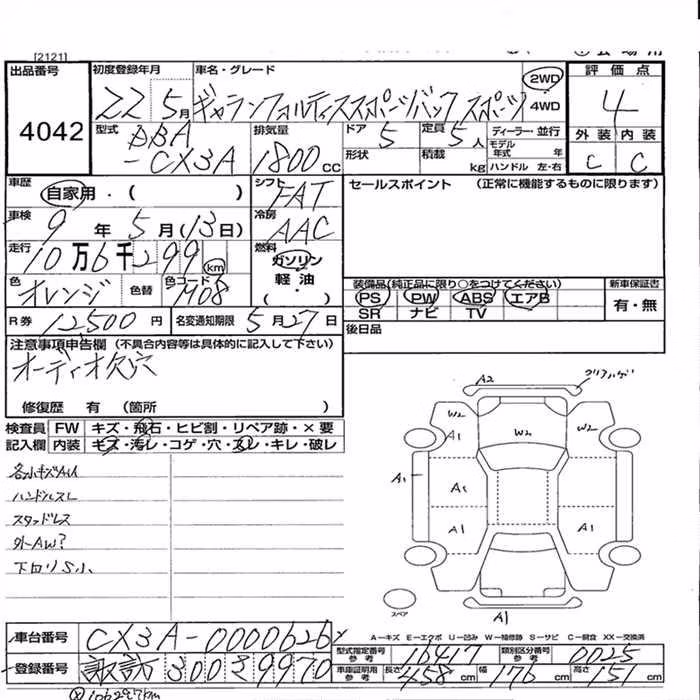 [2121]
出品番号 4042
初度登録年月 22 5月
車名・グレード ギャランフォルティススポーツバック スポーツ
2WD・4WD
評価点 4
外装 内装
C C
型式 DBA-CX3A
排気量 1800cc
ドア 5
定員 5人
形状
積載 kg
ディーラー・並行
モデル年式 年
ハンドル 左・右
車歴 自家用・( )
シフト FAT
車検 9年5月(13日)
冷房 AAC
走行 10万6千299km
燃料 ガソリン・軽油・( )
色 オレンジ
色替
色コード M08
R券 12500円
名変通知期限 5月27日
セールスポイント (正常に機能するものに限ります)
装備品(純正品に限り○をつけてください)
新車保証書
PS PW ABS エアB
SR ナビ TV
有・無
後日品
注意事項申告欄 (不具合内容等は具体的に記入して下さい)
オーディオ欠穴
修復歴 有 (箇所 )
検査員記入欄
FW キズ・飛石・ヒビ割・リペア跡・×要
内装 キズ・汚レ・コゲ・穴・スレ・キレ・破レ
ハンドルスレ
スタッドレス
外-AW?
A2
W2 W2 W2
A1
A1 A1
A1 A1
スペア
A1
A-キズ E-エクボ U-凹み W-補修跡 S-サビ C-腐食 XX-交換済
車台番号 CX3A-0000626
登録番号 諏訪 300 さ 9970
型式指定番号 参考 16417
類別区分番号 参考 0025
車庫証明用 参考 長さ 458cm 幅 176cm 高さ 151cm